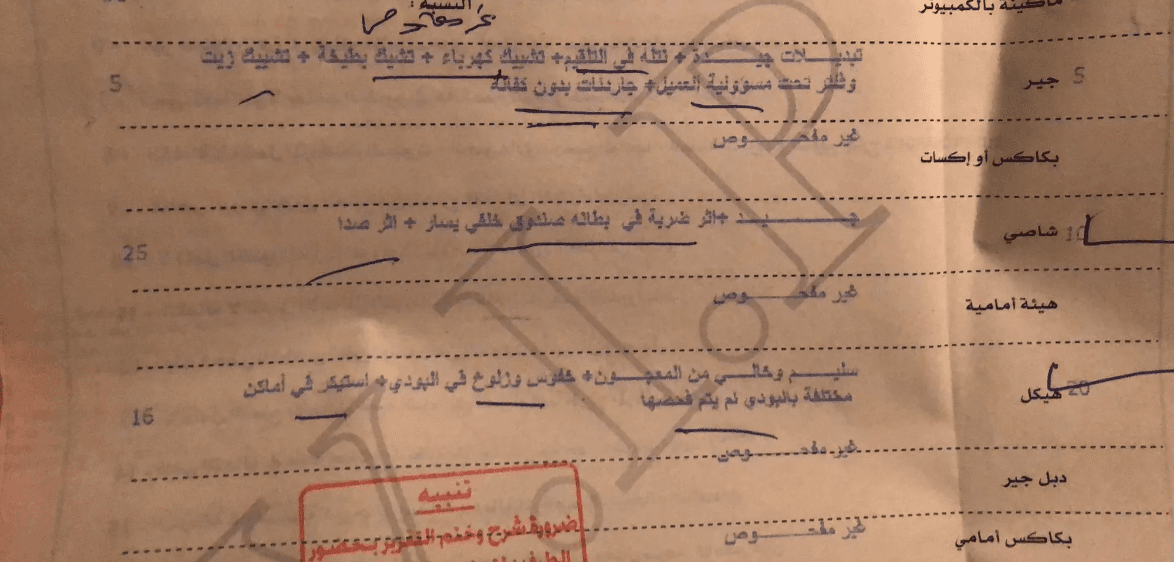 ماكينة بالكمبيوتر
النسبة :
جير 5 تبديـــلات جيـــــــدة + نتله في التلقيم+ تشييك كهرباء + تشيك بطيخة + تشييك زيت
وفلتر تحت مسؤولية العميل+ جارنتات بدون كفاله 5
بكاكس أو إكسات غير مفحـــــــوص
شاصي 10 جـــــــــيـــــد +اثر ضربة في بطانه صندوق خلفي يسار + اثر صدا
25
هيئة أمامية غير مفحـــــــوص
هيكل 20 سليـــم وخالـــي من المعجـــون+ خفوس وزلوخ في البودي+ استيكر في أماكن
مختلفة بالبودي لم يتم فحصها 16
دبل جير غير مفحـــــــوص
بكاكس أمامي غير مفحـــــــوص
تنبيه
ضرورة شرح وختم التقرير بحضور